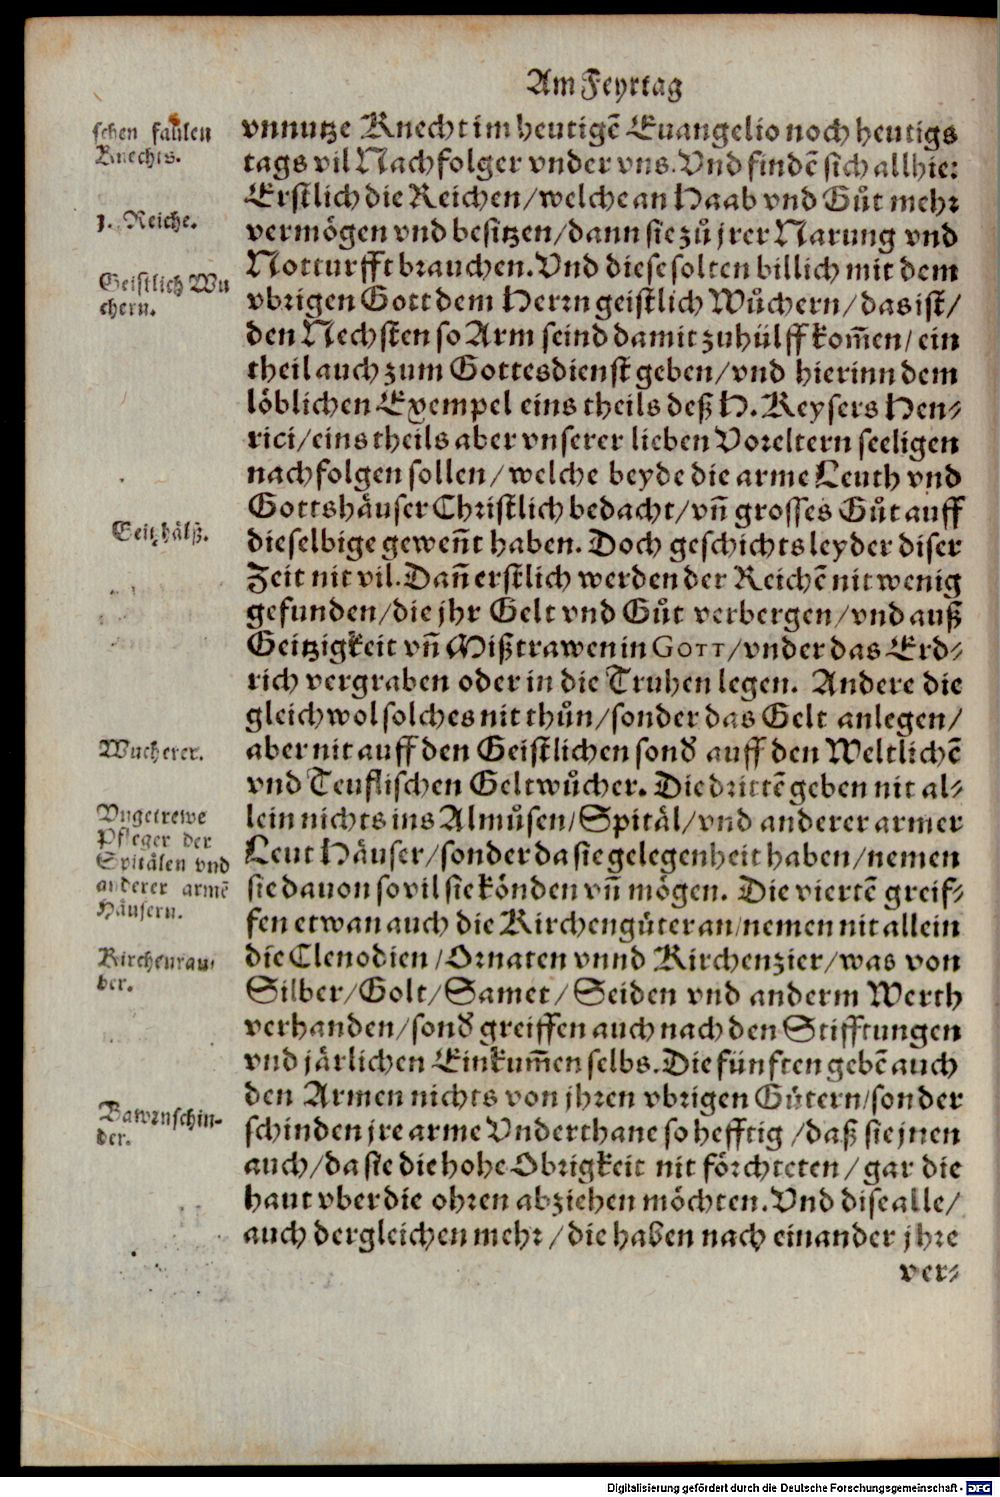 Am Feyrtag
schen faulen
Knechts.
1. Reiche.
Geistlich Wu
chern.
Geitzhälß.
Wucherer.
Vngetrewe
Pfleger der
Spitälen vnd
anderer armē
Häusern.
Kirchenrau-
ber.
Bawrnschin-
der.
vnnutze Knecht im heutigē Euangelio noch heutigs
tags vil Nachfolger vnder vns. Vnd findē sich allhie:
Erstlich die Reichen/welche an Haab vnd Gůt mehr
vermögen vnd besitzen/dann sie zů jrer Narung vnd
Notturfft brauchen. Vnd diese solten billich mit dem
vbrigen Gott dem Herrn geistlich Wůchern/das ist/
den Nechsten so Arm seind damit zuhülff kom̄en/ein
theil auch zum Gottesdienst geben/vnd hierinn dem
löblichen Exempel eins theils deß H. Keysers Hen-
rici/eins theils aber vnserer lieben Voreltern seeligen
nachfolgen sollen/welche beyde die arme Leuth vnd
Gottshäuser Christlich bedacht/vn̄ grosses Gůt auff
dieselbige gewen̄t haben. Doch geschichts leyder diser
Zeit nit vil. Dan̄ erstlich werden der Reichē nit wenig
gefunden/die jhr Gelt vnd Gůt verbergen/vnd auß
Geitzigkeit vn̄ Mißtrawen in GOTT/vnder das Erd-
rich vergraben oder in die Truhen legen. Andere die
gleichwol solches nit thůn/sonder das Gelt anlegen/
aber nit auff den Geistlichen sond auff den Weltlichē
vnd Teuflischen Geltwůcher. Die drittē geben nit al-
lein nichts ins Almůsen/Spitäl/vnd anderer armer
Leut Häuser/sonder da sie gelegenheit haben/nemen
sie dauon so vil sie könden vn̄ mögen. Die viertē greif-
fen etwan auch die Kirchengüter an/nemen nit allein
die Clenodien/Ornaten vnnd Kirchenzier/was von
Silber/Golt/Samet/Seiden vnd anderm Werth
verhanden/sond greiffen auch nach den Stifftungen
vnd järlichen Einkum̄en selbs. Die fünften gebē auch
den Armen nichts von jhren vbrigen Gütern/sonder
schinden jre arme Vnderthane so hefftig/daß sie jnen
auch/da sie die hohe Obrigkeit nit förchteten/gar die
haut vber die ohren abziehen möchten. Vnd dise alle/
auch dergleichen mehr/die haben nach einander jhre
ver-
Digitalisierung gefördert durch die Deutsche Forschungsgemeinschaft - DFG